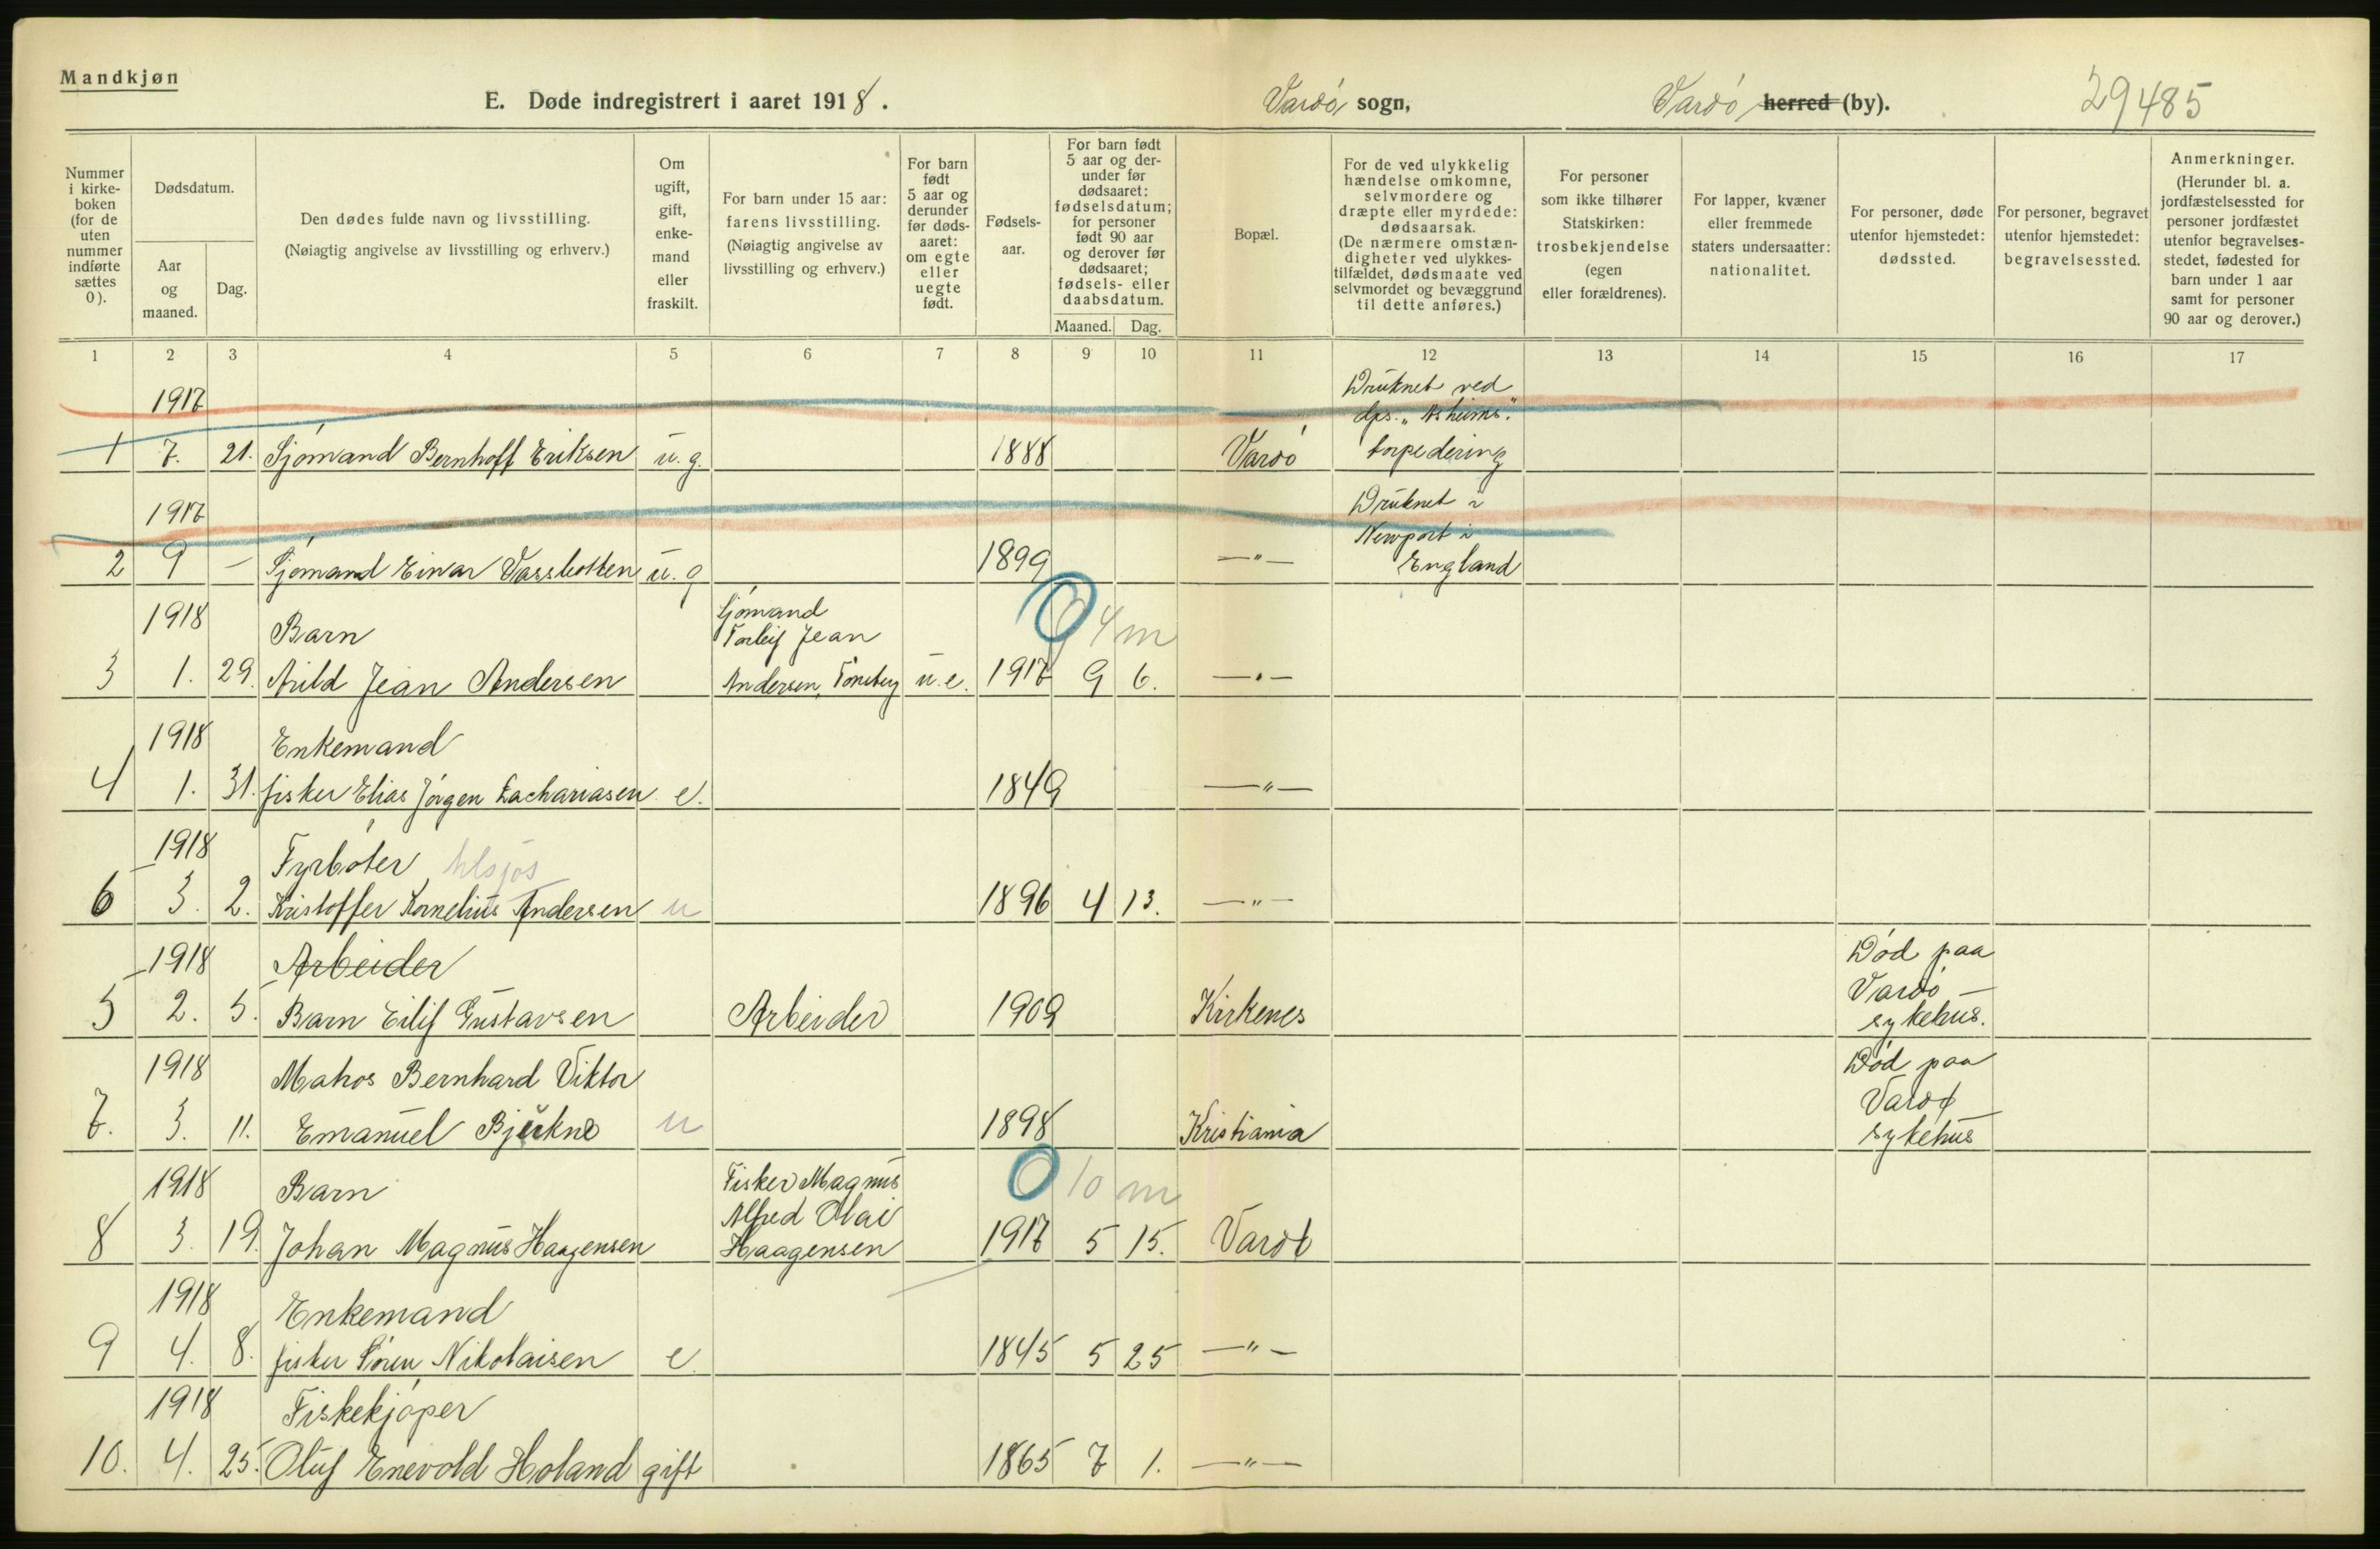 Mandkjøn
E. Døde indregistrert i aaret 1918.
Vardö sogn,
Vardö herred (by).
29485
Nummer i kirke-boken (for de uten nummer indførte sættes 0).
Dødsdatum.
Aar og maaned.
Dag.
Den dødes fulde navn og livsstilling.
(Nøiagtig angivelse av livsstilling og erhverv.)
Om ugift, gift, enke-mand eller fraskilt.
For barn under 15 aar: farens livsstilling.
(Nøiagtig angivelse av livsstilling og erhverv.)
For barn født 5 aar og derunder før døds-aaret: om egte eller uegte født.
Fødsels-aar.
For barn født 5 aar og der-under før dødsaaret: fødselsdatum; for personer født 90 aar og derover før dødsaaret; fødsels- eller daabsdatum.
Maaned.
Dag.
Bopæl.
For de ved ulykkelig hændelse omkomne, selvmordere og dræpte eller myrdede: dødsaarsak.
(De nærmere omstæn-digheter ved ulykkes-tilfældet, dødsmaate ved selvmordet og bevæggrund til dette anføres.)
For personer som ikke tilhører Statskirken: trosbekjendelse (egen eller forældrenes).
For lapper, kvæner eller fremmede staters undersaatter: nationalitet.
For personer, døde utenfor hjemstedet: dødssted.
For personer, begravet utenfor hjemstedet: begravelsessted.
Anmerkninger.
(Herunder bl. a. jordfæstelsessted for personer jordfæstet utenfor begravelses-stedet, fødested for barn under 1 aar samt for personer 90 aar og derover.)
1 2 3 4 5 6 7 8 9 10 11 12 13 14 15 16 17
1917 Druknet ved
dps.
1 7. 21. Sjömand Bernhoff Eriksen u. g. 1888 Vardö torpedering
1917 Druknet i
Newport i
2 9 – Sjömand Einar Vassbotten u. g 1899 —"— England
1918 Barn Sjömand Torleif Jean 0 4 m
3 1. 29. Arild Jean Andersen Andersen, Tönsberg u. e. 1917 9 6. —"—
1918 Enkemand
4 1. 31. fisker Elias Jörgen Zachariasen e. 1849 —"—
1918 Fyrböter
6 3. 2. Kristoffer Kornelius Andersen u 1896 4 13. —"—
1918 Arbeider Död paa
Vardö
5 2. 5. Barn Eilif Gustavsen Arbeider 1909 Kirkenes sykehus.
1918 Matros Bernhard Viktor Död paa
Vardø
7. 3. 11. Emanuel u 1898 Kristiania sykehus
1918 Barn Fisker Magnus Alfred Olai 0 10 m
8 3. 19. Johan Magnus Haagensen Haagensen 1917 5 15. Vardø
1918 Enkemand
9 4. 8. fisker Sören Nikolaisen e 1845 5 25 —"—
1918 Fiskekjöper
10. 4. 25. Oluf Enevold Holand gift 1865 7 1. —"—